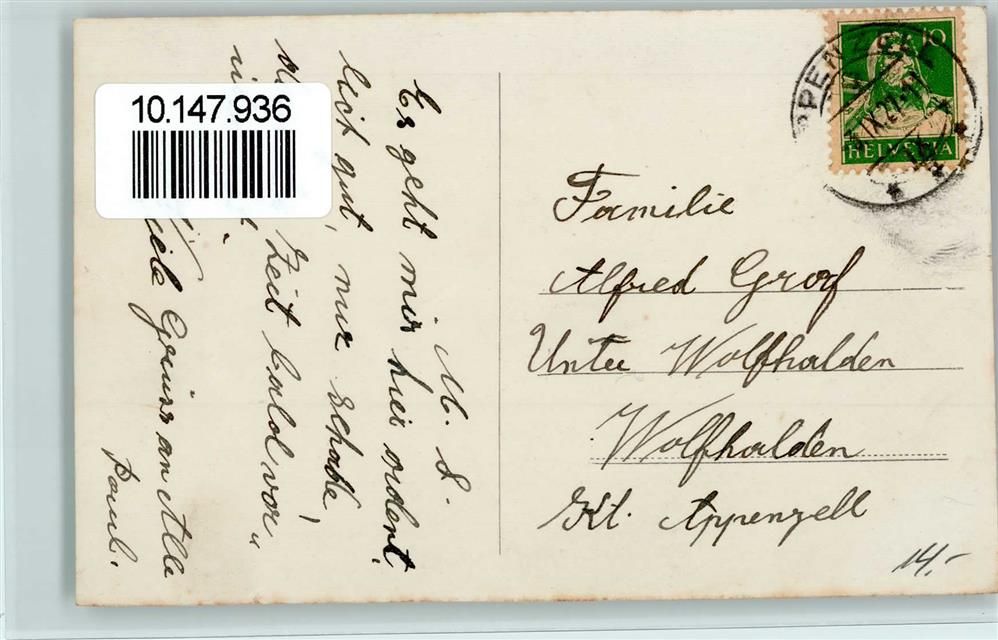 10.147.936
10
HELVETIA
M. L.
Es geht mir hier ordent
lich gut, nur schade,
Zeit bald vor„
viele Grüsse an Alle
Paul.
Familie
Alfred Graf
Unter Wolfhalden
Wolfhalden
Kt. Appenzell
14.-